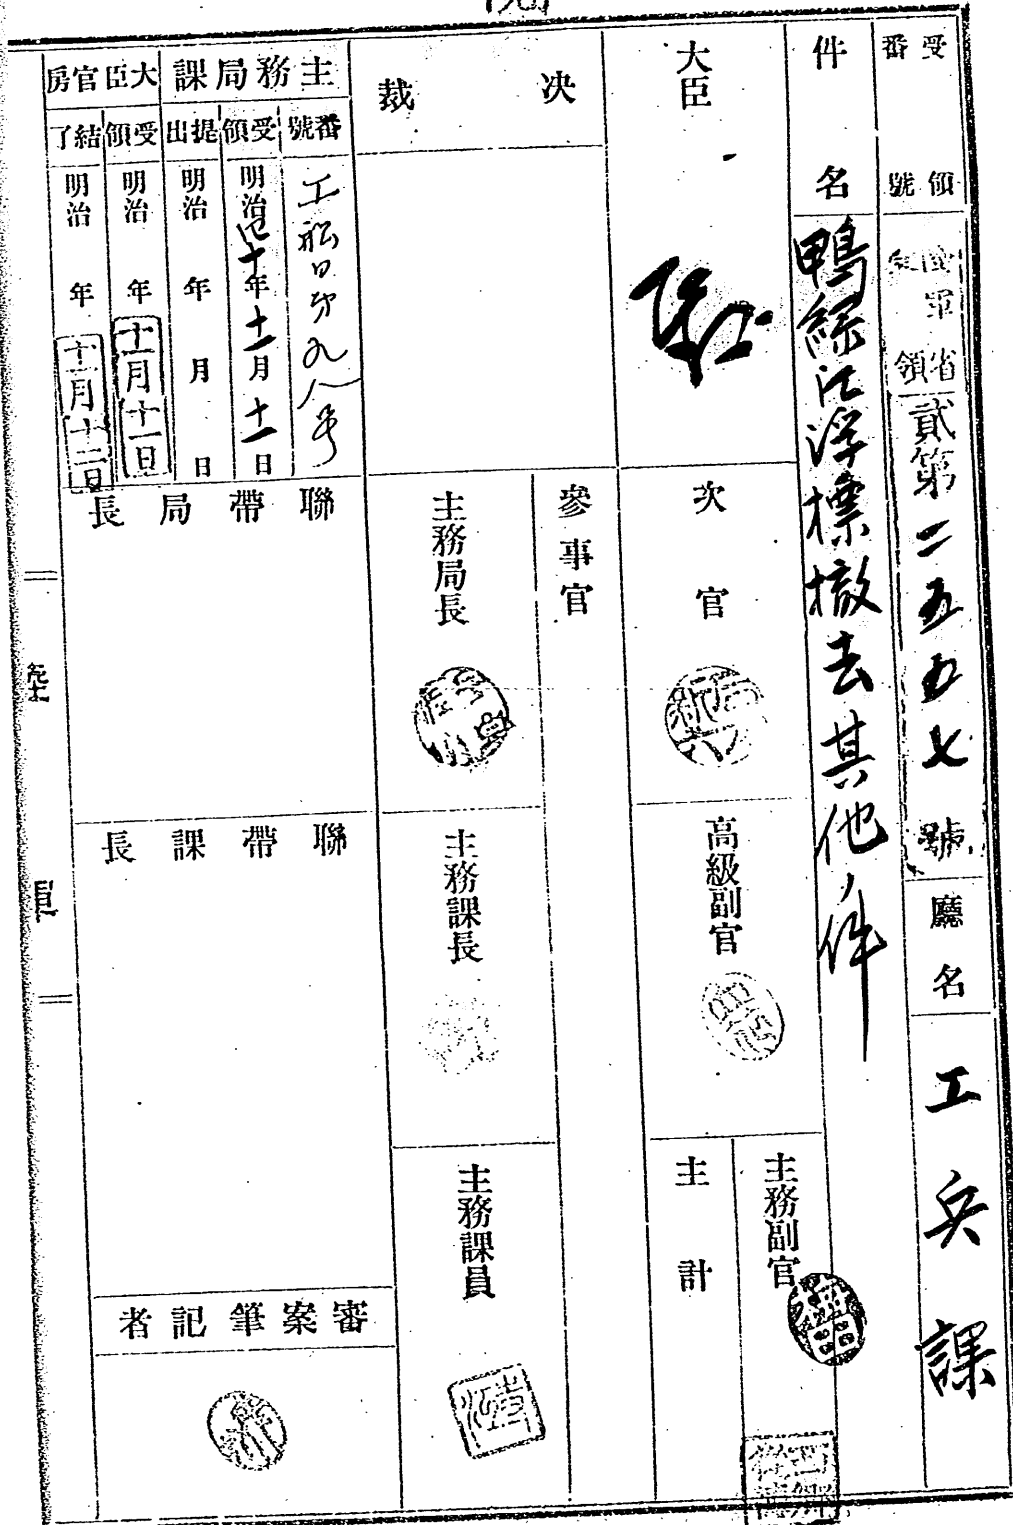 受領番號
陸軍省
領
貳第二五五七號
廳名
工兵課
件名
鴨綠江浮標撤去其他ノ件
大臣
次官
高級副官
主務副官
主計
決裁
參事官
主務局長
主務課長
主務課員
主務局課
番號
受領
明治四十年十一月十一日
提出
明治 年 月 日
大臣官房
受領
明治 年十一月十一日
結了
明治 年十一月十二日
聯帶局長
聯帶課長
審案筆記者
陸軍